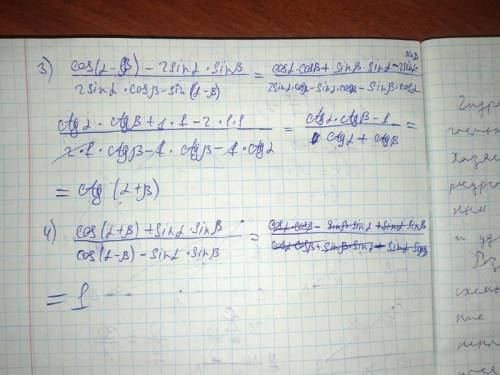 3) cos(α-β) - 2sinα·sinβ / 2sinα·cosβ-sin(α-β) = cosα·cosβ + sinβ·sinα - 2sinα· sinβ / 2sinα·cosβ-sinα·cosβ - sinβ·cosα
ctgα·ctgβ+1·1-2·1·1 / 2·1·ctgβ-1·ctgβ-1·ctgα = ctgα·ctgβ-1 / ctgα + ctgβ =
= ctg (α+β)
4) cos(α+β)+sinα·sinβ / cos(α-β) - sinα·sinβ = cosα·cosβ - sinβ·sinα + sinα·sinβ / cosα·cosβ + sinβ·sinα - sinα·sinβ
= 1